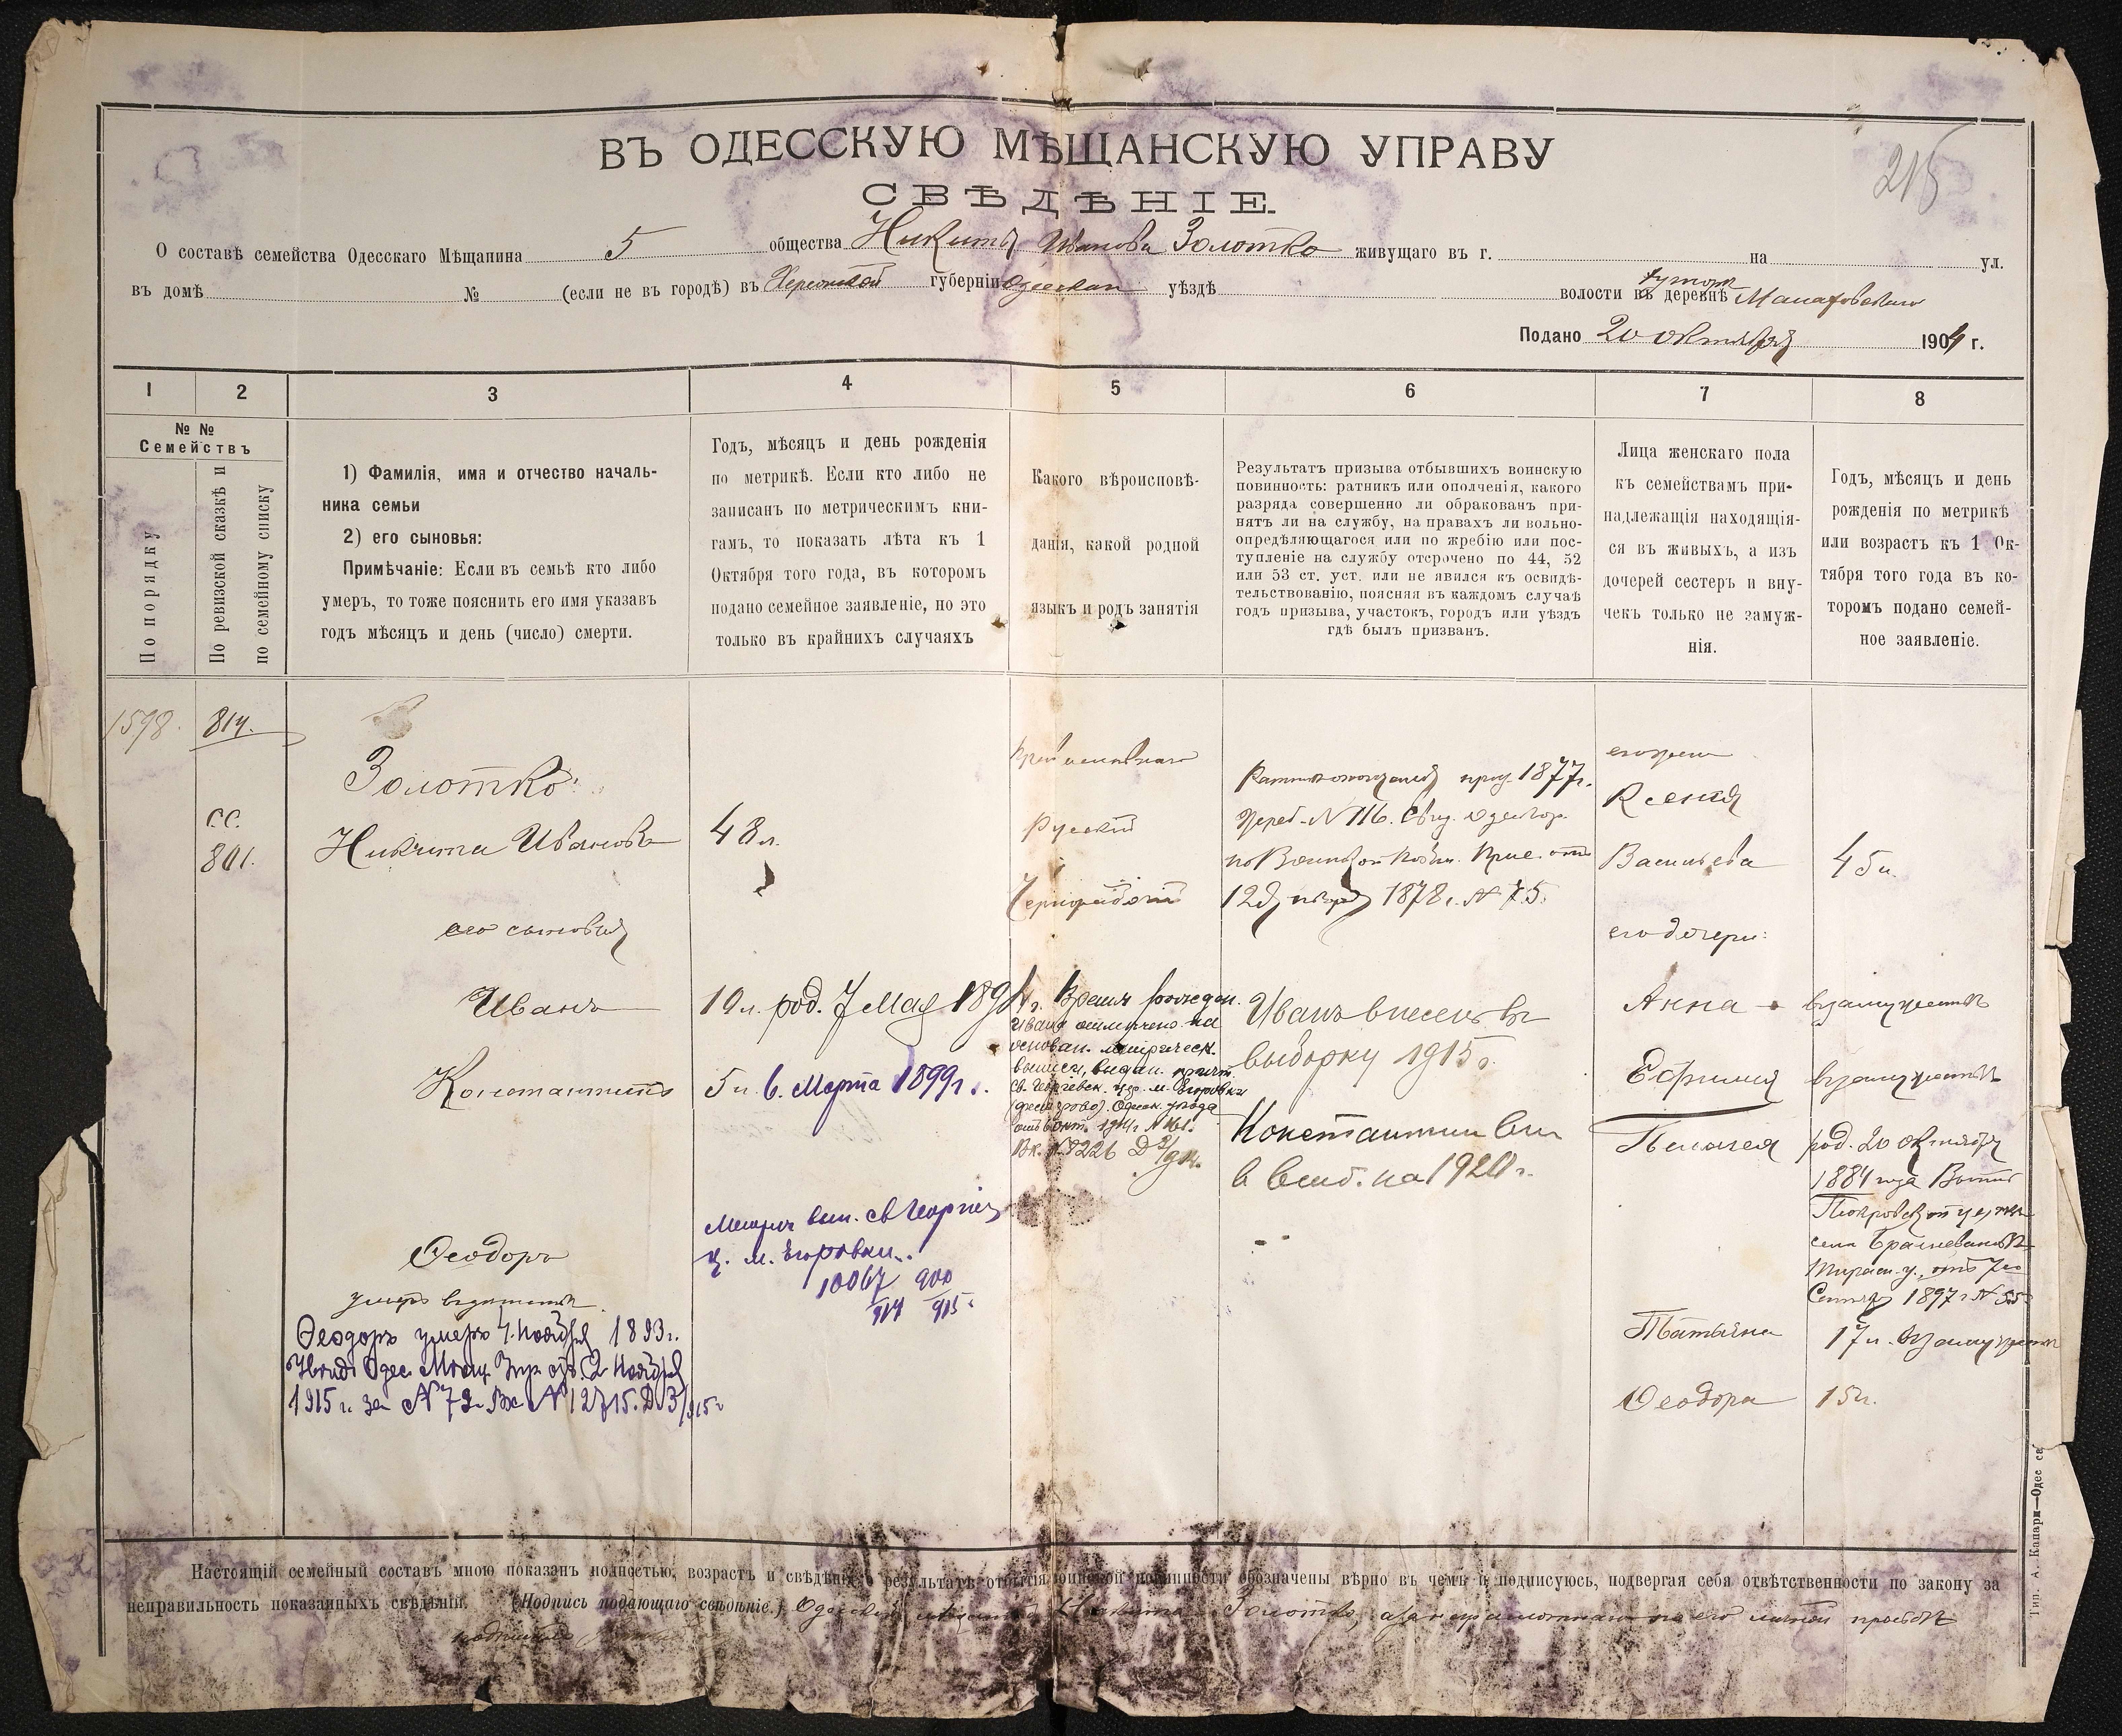 215
ВЪ ОДЕССКУЮ МѢЩАНСКУЮ УПРАВУ
СВѢДѢНІЕ.
О составѣ семейства Одесскаго Мѣщанина 5 общества Никиты Иванова Золотко живущаго въ г. на ул.
въ домѣ № (если не въ городѣ) въ Херсонской губерніи Одесскаго уѣздѣ волости въ деревнѣ хуторѣ
Подано 20 октября 1904 г.
1 2 3 4 5 6 7 8
№ № Семействъ
По порядку
По ревизской сказкѣ и по семейному списку
1) Фамилія, имя и отчество началь-
ника семьи
2) его сыновья:
Примѣчаніе: Если въ семьѣ кто либо
умеръ, то тоже пояснить его имя указавъ
годъ мѣсяцъ и день (число) смерти.
Годъ, мѣсяцъ и день рожденія
по метрикѣ. Если кто либо не
записанъ по метрическимъ кни-
гамъ, то показать лѣта къ 1
Октября того года, въ которомъ
подано семейное заявленіе, но это
только въ крайнихъ случаяхъ
Какого вѣроисповѣ-
данія, какой родной
языкъ и родъ занятія
Результатъ призыва отбывшихъ воинскую
повинность: ратникъ или ополченія, какого
разряда совершенно ли обракованъ при-
нятъ ли на службу, на правахъ ли вольно-
опредѣляющагося или по жребію или пос-
тупленіе на службу отсрочено по 44, 52
или 53 ст. уст. или не явился къ освидѣ-
тельствованію, поясняя въ каждомъ случаѣ
годъ призыва, участокъ, городъ или уѣздъ
гдѣ былъ призванъ.
Лица женскаго пола
къ семействамъ при-
надлежащія находящія-
ся въ живыхъ, а изъ
дочерей сестеръ и вну-
чекъ только не замуж-
нія.
Годъ, мѣсяцъ и день
рожденія по метрикѣ
или возрастъ къ 1 Ок-
тября того года въ ко-
торомъ подано семей-
ное заявленіе.
1598. 814.
801.
Золотко
Никита Ивановъ
48 л.
его сыновья
Иванъ
10 л. род. 7 Мая 1894 г.
Константинъ
5 л. 6. Марта 1899 г.
Метрич вып. св Георгіев
ц. м. Егоровки
10067/914 900/915
Ѳеодоръ
умеръ
Ѳеодоръ умеръ 4 Ноября 1893 г.
Одес. Мѣщ. Упр. отъ 2 Ноября
1915 г. за № 79 Вх № 12715. Д 3/915 г
Православнаго
Русскій
Чернорабочій
Время рожден.
Ивана отмѣчено на
основан. метрическ.
выписи, выдан. причт.
св. Георгіевск. цер. м. Егоровки
Одесск. уѣзда
1914 г № 161.
Вх. № 9226
Ратникъ ополченія приз. 1877 г.
Жереб. № 116. Свид. Одесскаго
по Воинской Повин. Прис. отъ
12 Января 1878 г. № 75.
Иванъ внесенъ въ
выборку 1915 г.
Константин вн
в выб. на 1920 г.
его жена
Ксенія
Васильева
45 л.
его дочери:
Анна
въ замужествѣ
Ефимія
въ замужествѣ
Пелагея
род. 20 октября
1884 года
Покровской церкви
села
Тирасп. у., отъ 7го
Сентября 1897 г № 55
Татьяна
17 л. въ замужеств
Ѳеодора
15 л.
Настоящій семейный составъ мною показанъ полностью, возрастъ и свѣдѣнія о результатѣ отбытія воинской повинности обозначены вѣрно въ чемъ и подписуюсь, подвергая себя отвѣтственности по закону за
неправильность показанныхъ свѣдѣній. (Подпись подающаго свѣдѣніе.) Одесскій мѣщанинъ Никита Золотко, а за неграмотнаго по его личной просьбѣ
Тип. А. Канари—Одес